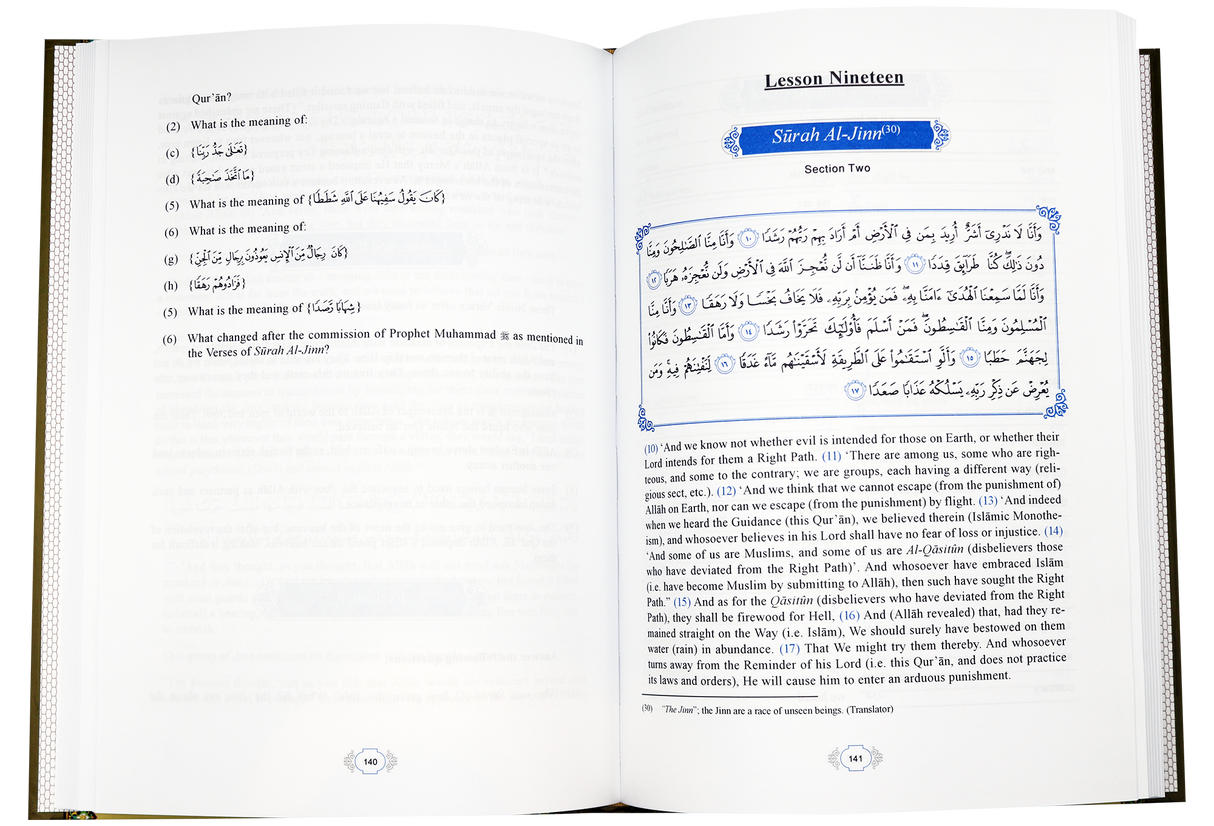 Qur'ān?
(2) What is the meaning of:
(c) {تَعَٰلَىٰ جَدُّ رَبِّنَا}
(d) {مَا ٱتَّخَذَ صَٰحِبَةً}
(5) What is the meaning of {كَانَ يَقُولُ سَفِيهُنَا عَلَى ٱللَّهِ شَطَطًا}
(6) What is the meaning of:
(g) {كَانَ رِجَالٌ مِّنَ ٱلْإِنسِ يَعُوذُونَ بِرِجَالٍ مِّنَ ٱلْجِنِّ}
(h) {فَزَادُوهُمْ رَهَقًا}
(5) What is the meaning of {شِهَابًا رَّصَدًا}
(6) What changed after the commission of Prophet Muhammad ﷺ as mentioned in
the Verses of Sūrah Al-Jinn?
140
Lesson Nineteen
Sūrah Al-Jinn(30)
Section Two
وَأَنَّا لَا نَدْرِىٓ أَشَرٌّ أُرِيدَ بِمَن فِى ٱلْأَرْضِ أَمْ أَرَادَ بِهِمْ رَبُّهُمْ رَشَدًا ١٠ وَأَنَّا مِنَّا ٱلصَّٰلِحُونَ وَمِنَّا
دُونَ ذَٰلِكَ كُنَّا طَرَآئِقَ قِدَدًا ١١ وَأَنَّا ظَنَنَّآ أَن لَّن نُّعْجِزَ ٱللَّهَ فِى ٱلْأَرْضِ وَلَن نُّعْجِزَهُۥ هَرَبًا ١٢
وَأَنَّا لَمَّا سَمِعْنَا ٱلْهُدَىٰٓ ءَامَنَّا بِهِۦ فَمَن يُؤْمِنۢ بِرَبِّهِۦ فَلَا يَخَافُ بَخْسًا وَلَا رَهَقًا ١٣ وَأَنَّا مِنَّا
ٱلْمُسْلِمُونَ وَمِنَّا ٱلْقَٰسِطُونَ فَمَنْ أَسْلَمَ فَأُو۟لَٰٓئِكَ تَحَرَّوْا۟ رَشَدًا ١٤ وَأَمَّا ٱلْقَٰسِطُونَ فَكَانُوا۟
لِجَهَنَّمَ حَطَبًا ١٥ وَأَلَّوِ ٱسْتَقَٰمُوا۟ عَلَى ٱلطَّرِيقَةِ لَأَسْقَيْنَٰهُم مَّآءً غَدَقًا ١٦ لِّنَفْتِنَهُمْ فِيهِ وَمَن
يُعْرِضْ عَن ذِكْرِ رَبِّهِۦ يَسْلُكْهُ عَذَابًا صَعَدًا ١٧
(10) 'And we know not whether evil is intended for those on Earth, or whether their
Lord intends for them a Right Path. (11) 'There are among us, some who are righ-
teous, and some to the contrary; we are groups, each having a different way (reli-
gious sect, etc.). (12) 'And we think that we cannot escape (from the punishment of)
Allāh on Earth, nor can we escape (from the punishment) by flight. (13) 'And indeed
when we heard the Guidance (this Qur'ān), we believed therein (Islāmic Monothe-
ism), and whosoever believes in his Lord shall have no fear of loss or injustice. (14)
'And some of us are Muslims, and some of us are Al-Qāsitûn (disbelievers those
who have deviated from the Right Path)'. And whosoever have embraced Islām
(i.e. have become Muslim by submitting to Allāh), then such have sought the Right
Path." (15) And as for the Qāsitûn (disbelievers who have deviated from the Right
Path), they shall be firewood for Hell, (16) And (Allāh revealed) that, had they re-
mained straight on the Way (i.e. Islām), We should surely have bestowed on them
water (rain) in abundance. (17) That We might try them thereby. And whosoever
turns away from the Reminder of his Lord (i.e. this Qur'ān, and does not practice
its laws and orders), He will cause him to enter an arduous punishment.
(30) "The Jinn"; the Jinn are a race of unseen beings. (Translator)
141